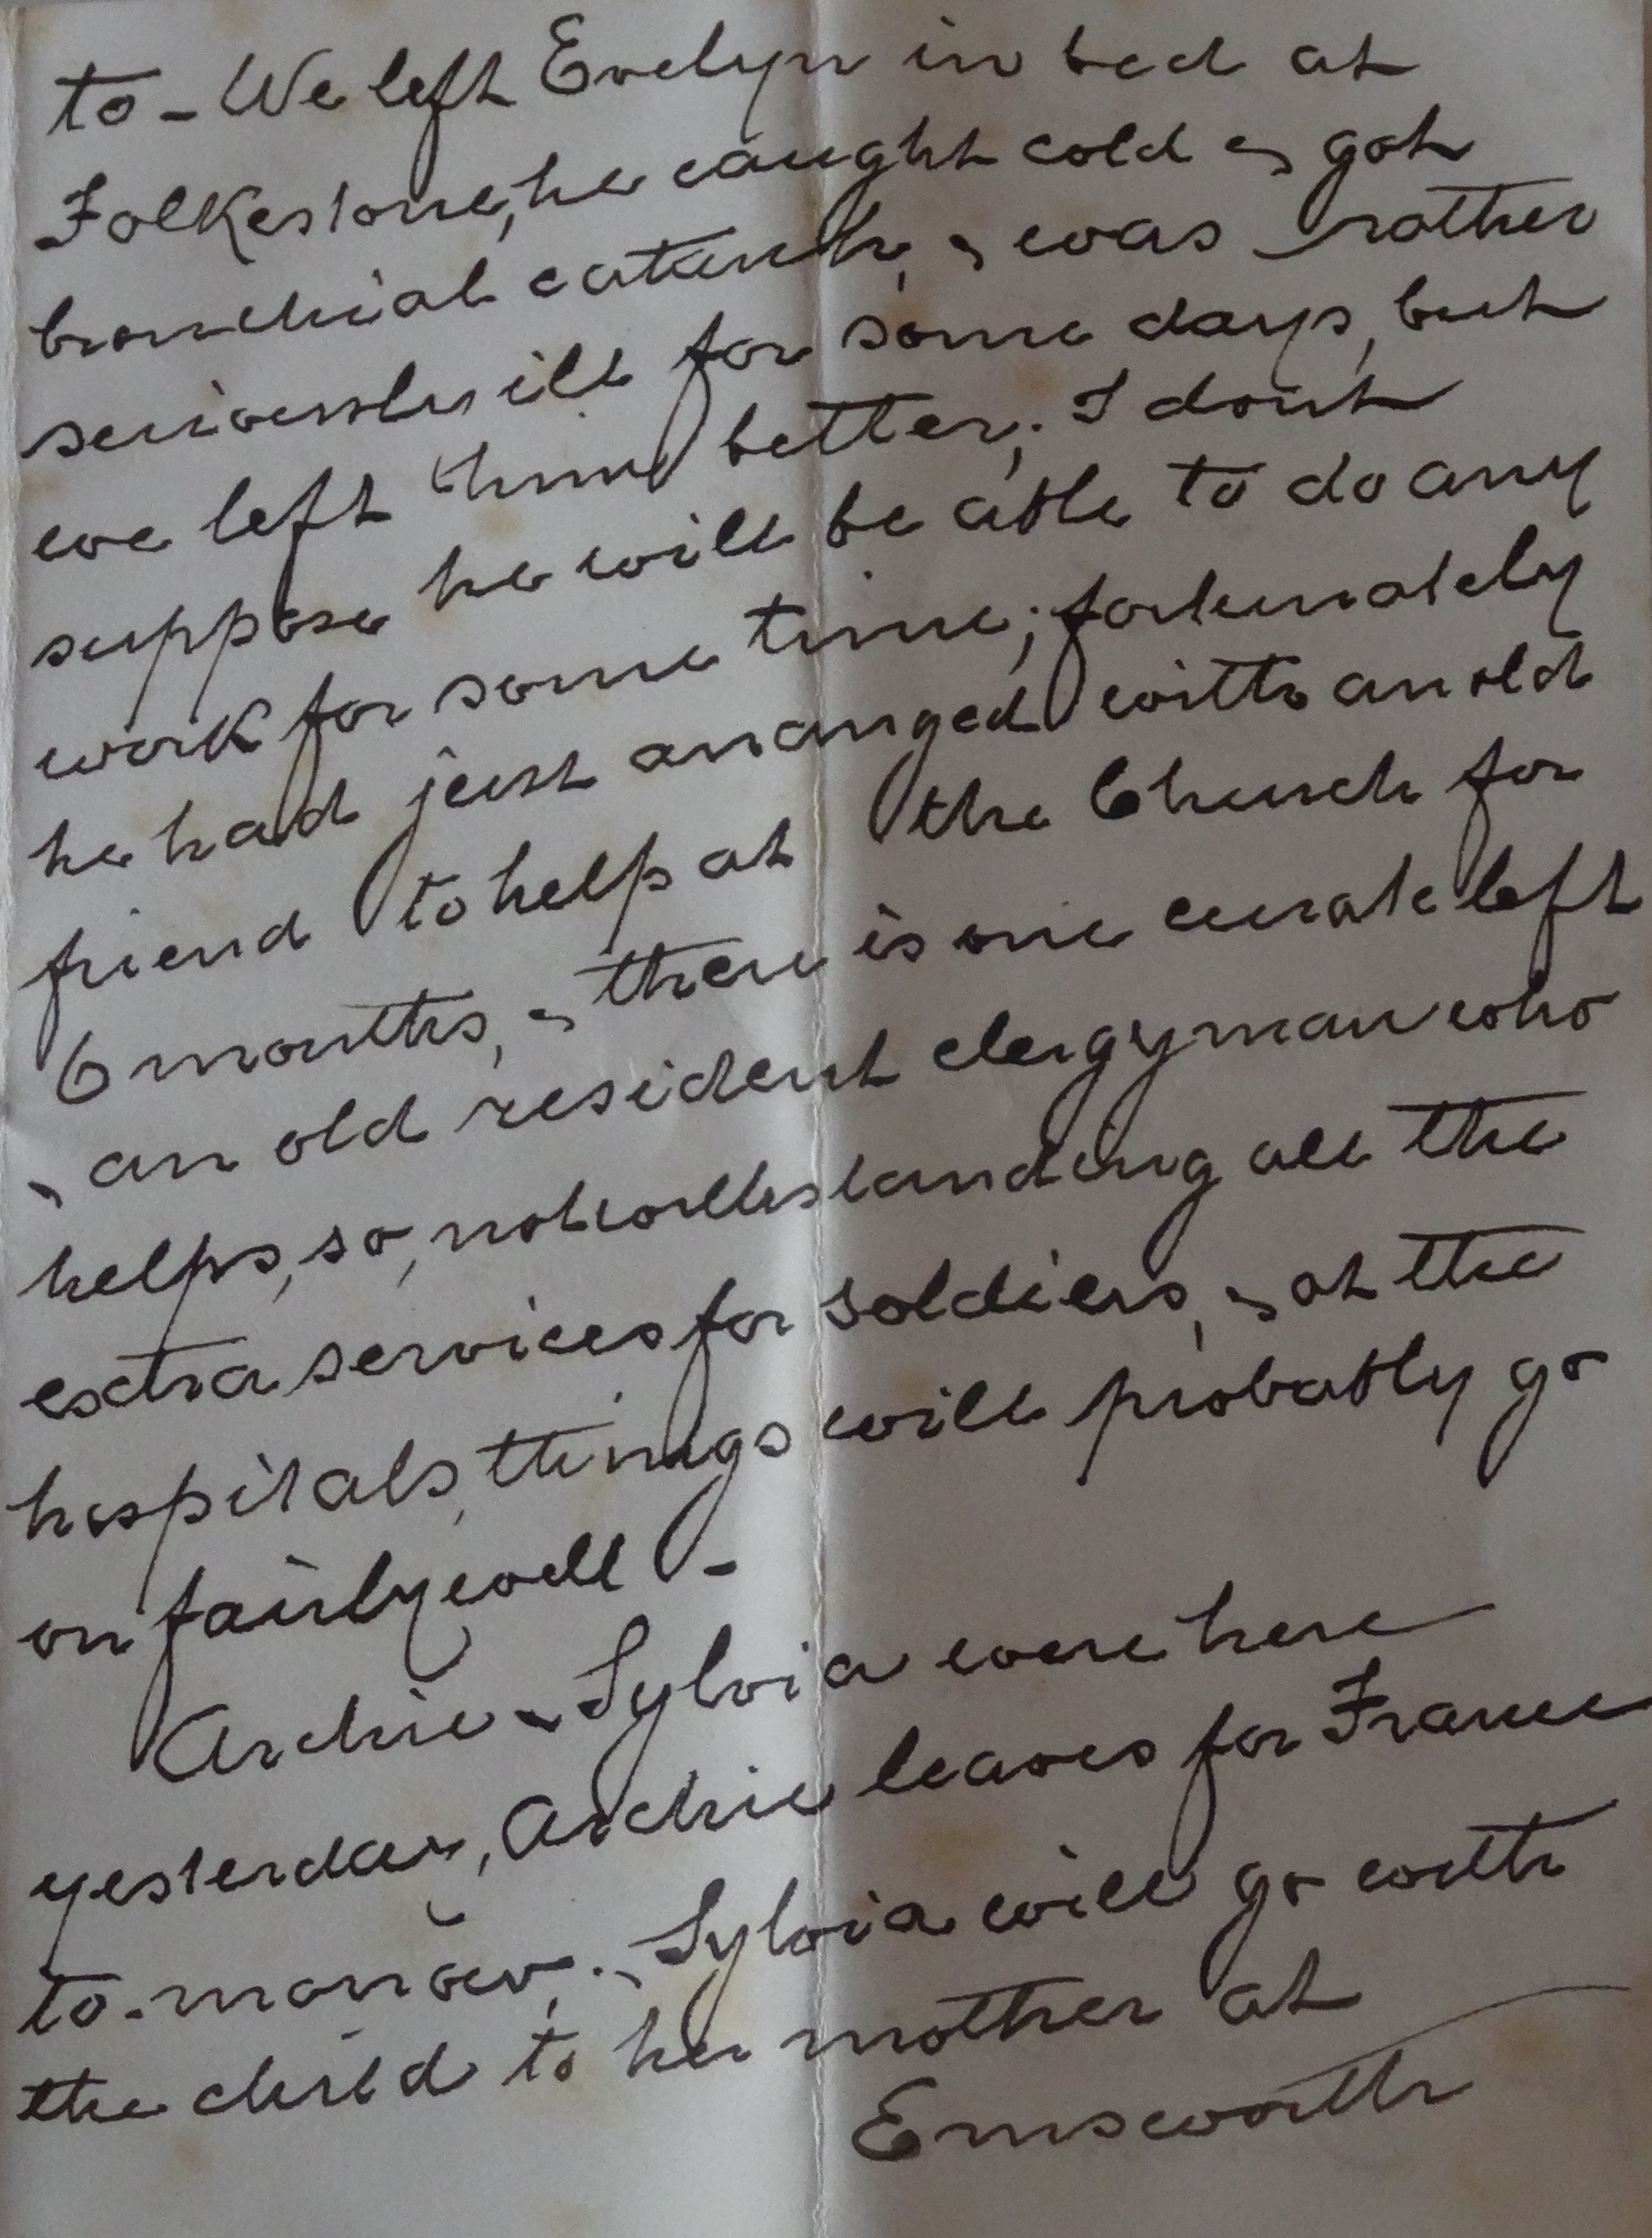 to - We left Evelyn in bed at
Folkestone, he caught cold & got
bronchial catarrh, & was rather
seriously ill for some days, but
we left him better; I dont
suppose he will be able to do any
work for some time; fortunately
he had just arranged with an old
friend to help at the Church for
6 months, & there is one curate left
& an old resident clergyman who
helps, so, notwithstanding all the
extra services for soldiers, & at the
hospitals, things will probably go
on fairly well -
Archie & Sylvia were here
yesterday, Archie leaves for France
to-morrow, & Sylvia will go with
the child to her mother at
Emsworth